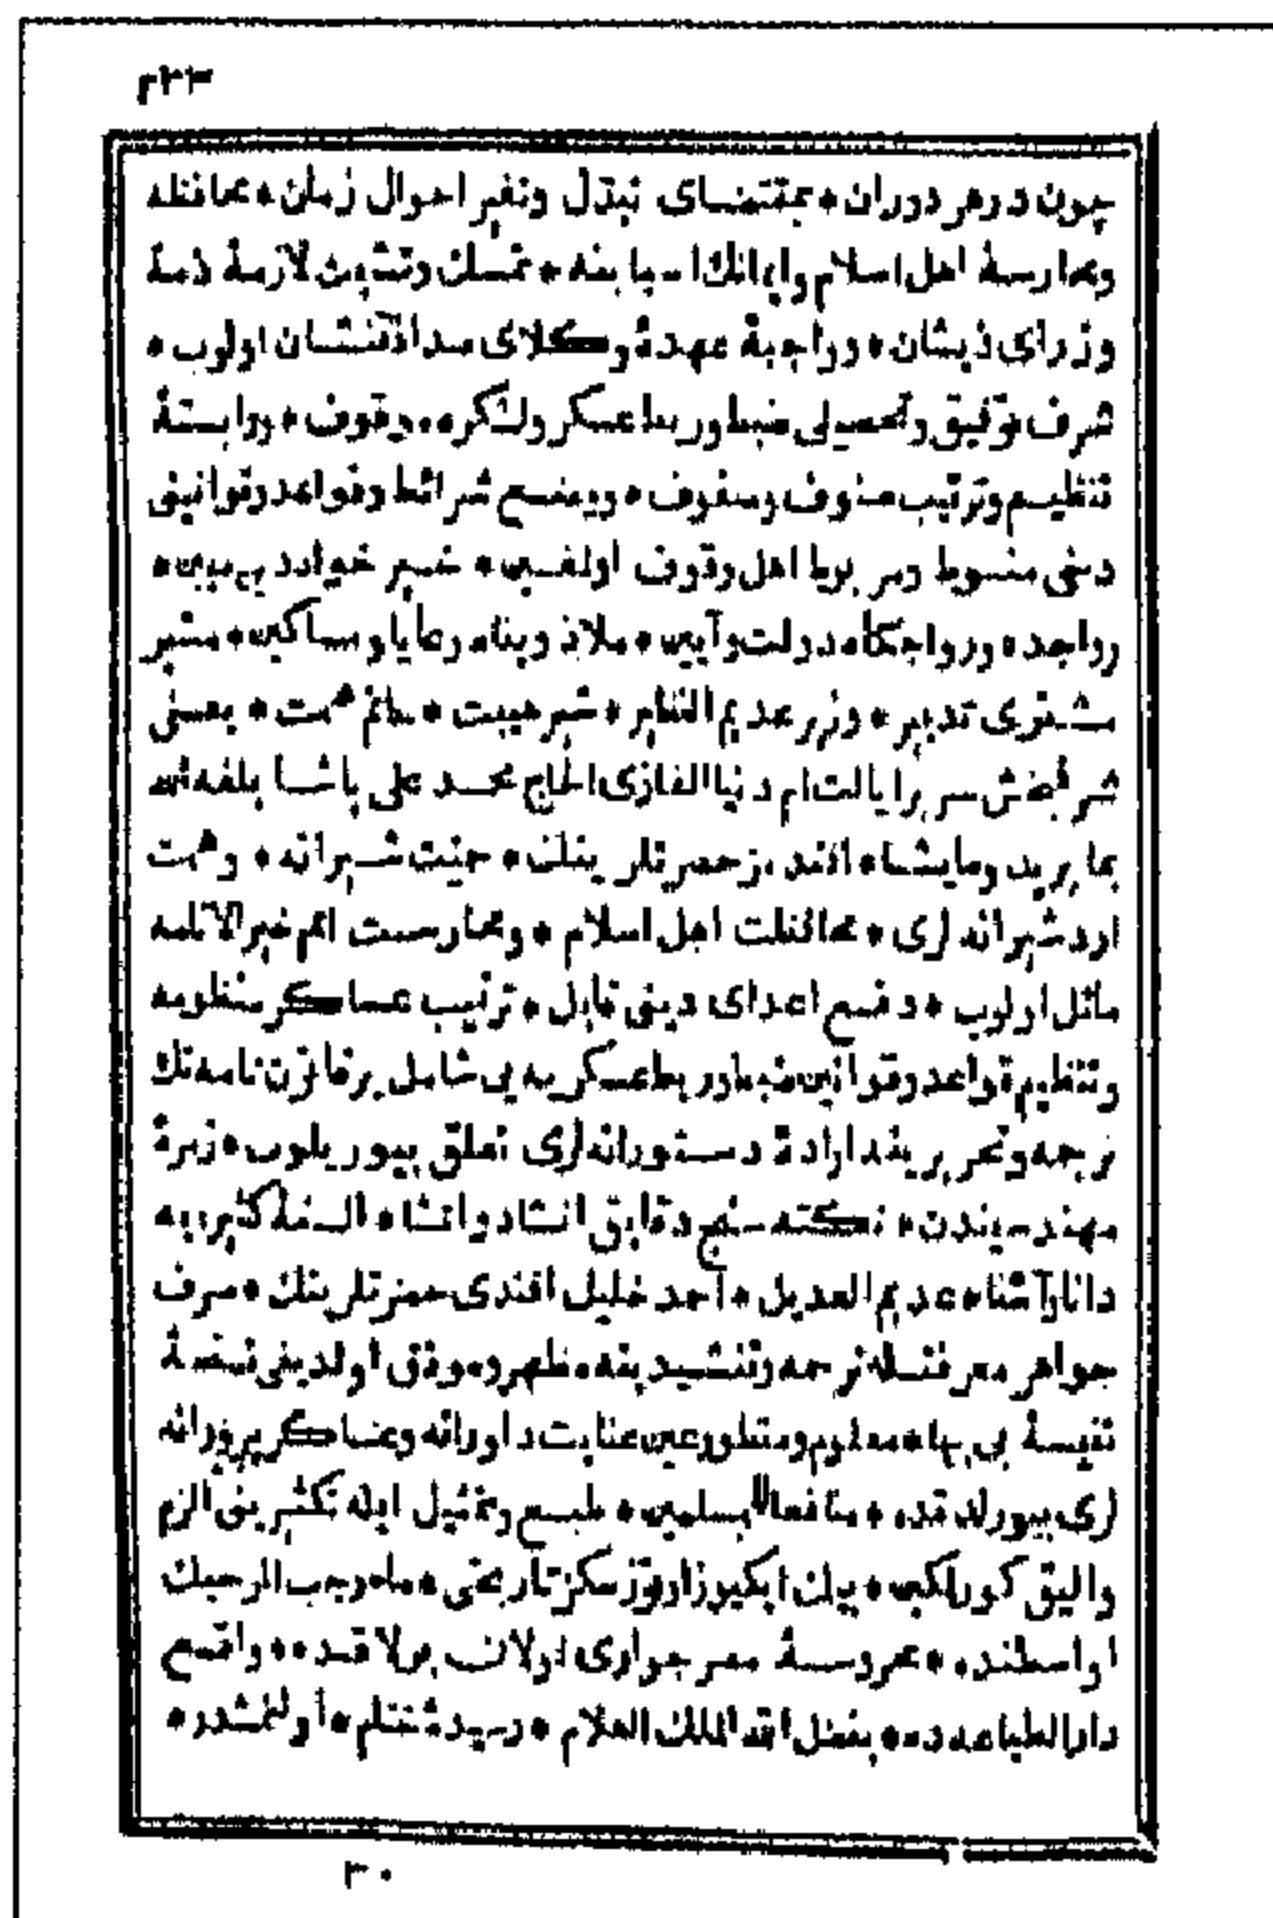 ٢٣٣
چون در هر دوران * بمقتضاى تبدل وتغير احوال زمان * محافظه
وممارسهٔ اهل اسلام وايمانك اسبابنه * تمسك وتشبث لازمهٔ ذمهٔ
وزراى ذيشان * وواجبهٔ عهدهٔ وكلاى صداقتنشان اولوب *
شرف توفيق وتحصيلى ضبط وربط عسكر ولشكره موقوف * ووابستهٔ
تنظيم وترتيب صنوف وصفوف * وبوضع شرائط وقواعد وقوانينى
دخى منسوط ومربوط اهل وقوف اولغين * خير خواه دين مبين *
رواجده ورواجكاه دولت وآيين * ملاذ وپناه رعايا ومساكين * مشير
مشترى تدبير * وزير عديم النظير * شير هيبت * حاتم همت * يعنى
شرفبخش سرير ايالت ام دنيا الغازى الحاج محمد على پاشا بلغه الله
بما يريد وما يشاء افندمز حضرتلرينك * حميت شيرانه * وهمت
اردشيرانه لرى * محافظت اهل اسلام * وممارست امم خير الانامه
مائل اولوب * دفع اعداى دينى قابل * ترتيب عساكر منظومه
وتنظيم قواعد وقوانين ضبط وربط عسكريه يى شامل بر قانون نامه نك
ترجمه وتحريرينه ارادهٔ دستورانه لرى تعلق بيوريلوب * زمرهٔ
مهندسيندن * نكته سنج دقايق انشاد وانشا * السنهٔ كثيره يه
دانا وآشنا * عديم العديل * احمد خليل افندى حضرتلرينك * صرف
جواهر معرفتله ترجمه وتنشيدينه * مظهر وموفق اولديغى نسخهٔ
نفيسهٔ بى بها * معلوم ومنظور عين عنايت داورانه وعساكر پرورانه
لرى بيورلدقده * منافعا للمسلمين * طبع وتمثيل ايله تكثيرينى الزم
واليق كورلمكين * بيك ايكيوز اوتوز سكز تاريخنى * ماه رجب المرجبك
اواسطنده * محروسهٔ مصر جوارى اولان بولاقده * واقع
دار الطباعه ده * بفضل الله الملك العلام * رسيدهٔ ختام * اولنمشدر *
٣٠